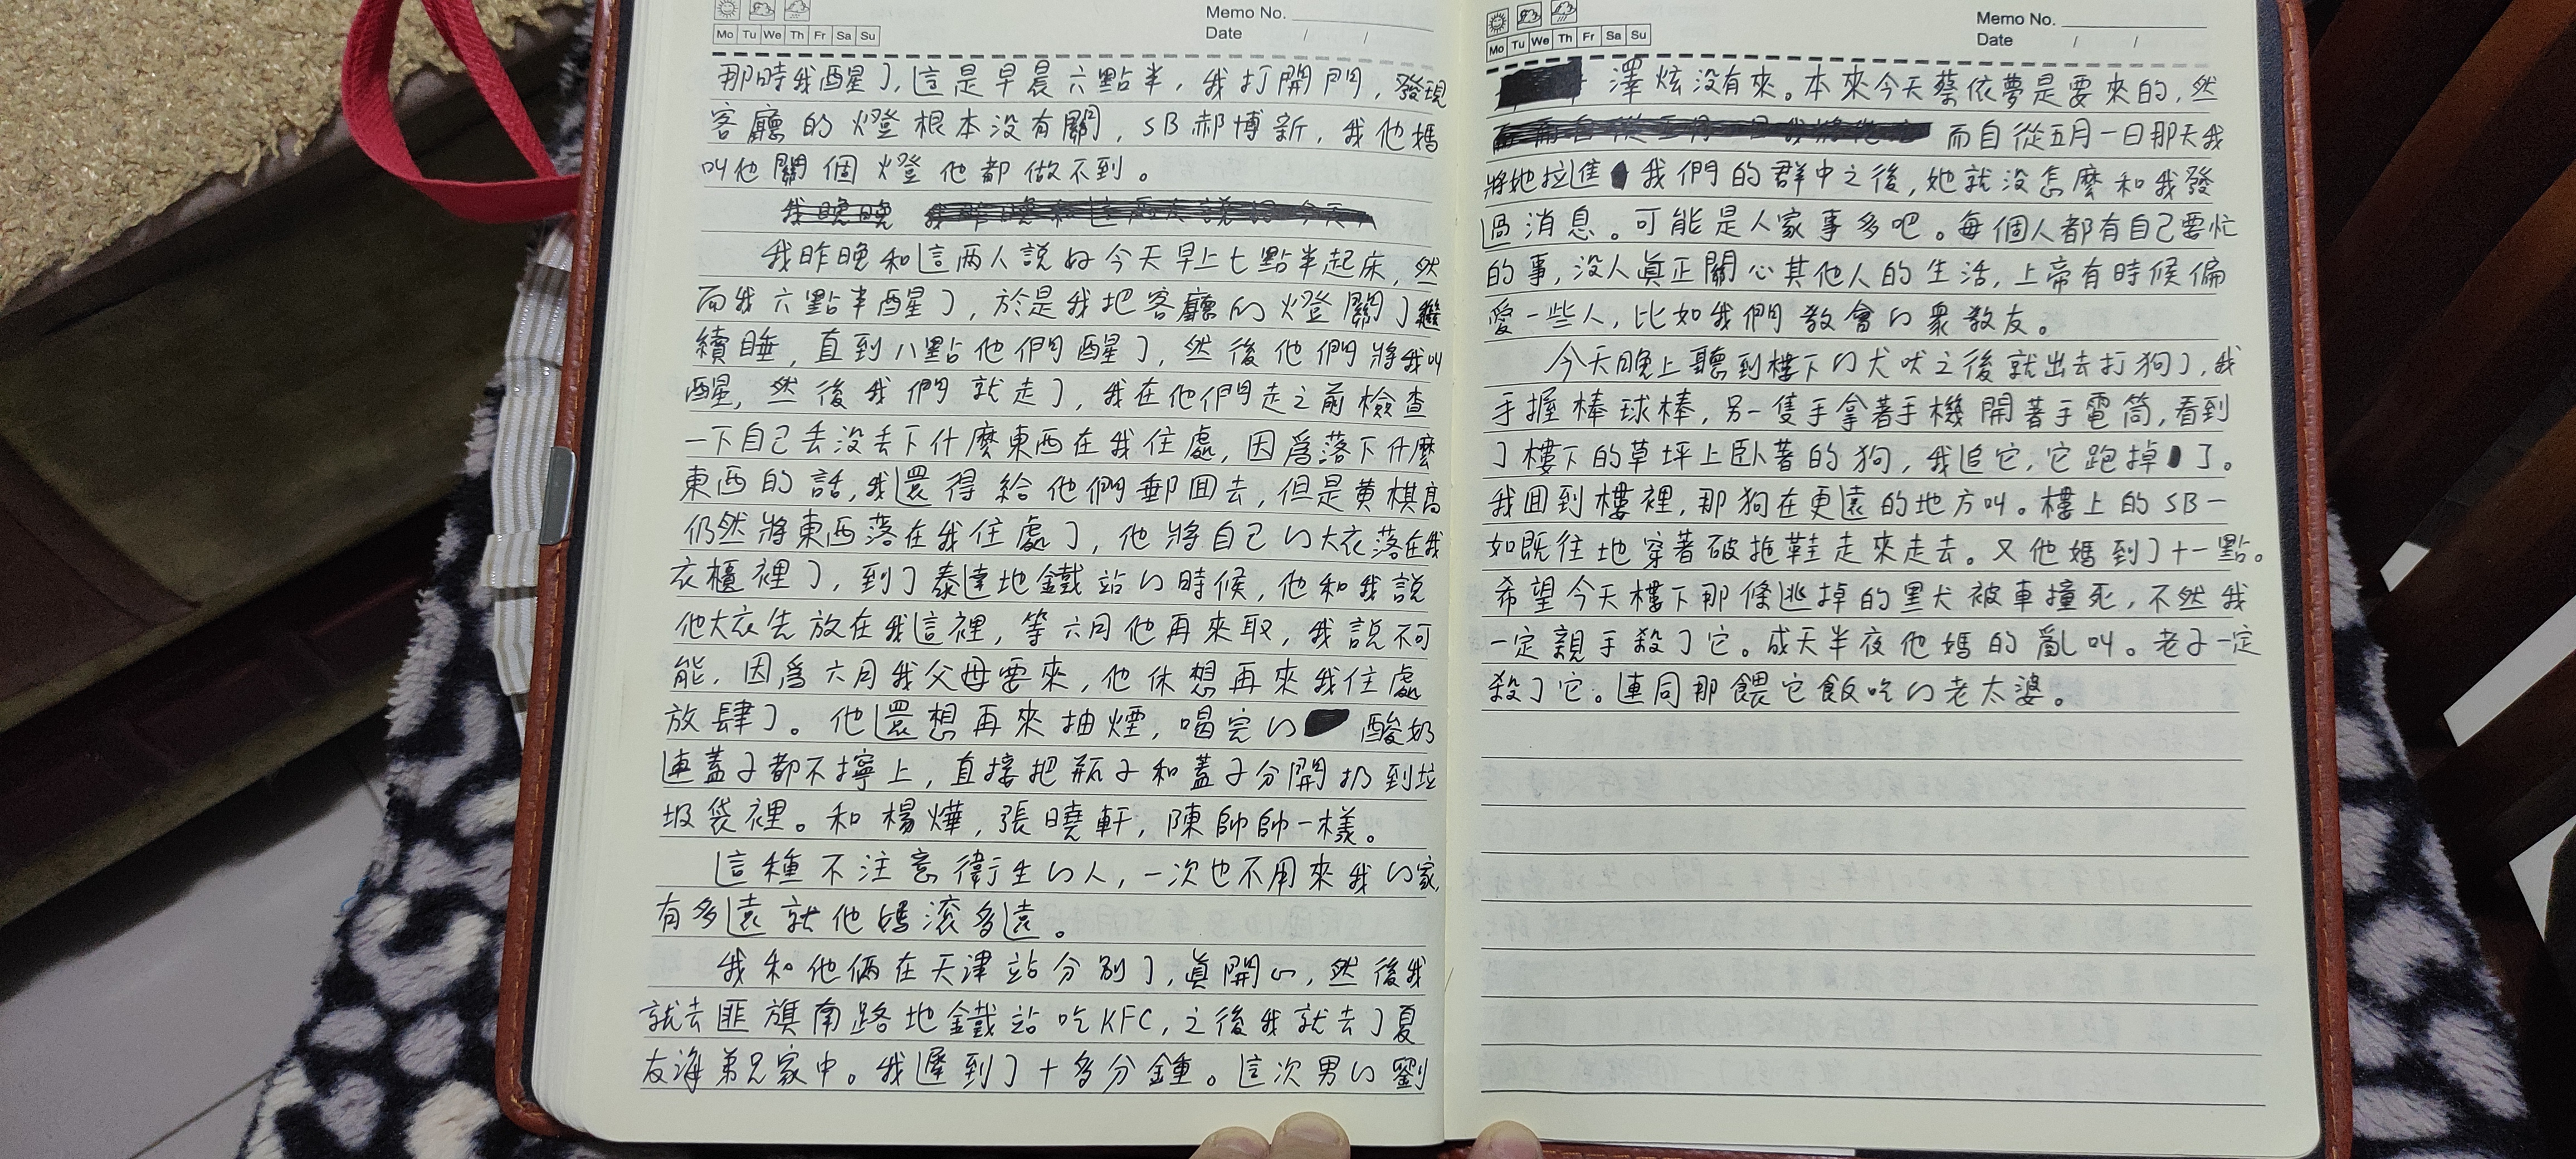 Memo No.
Mo Tu We Th Fr Sa Su
Date / /
那時我醒了,這是早晨六點半,我打開門,發現
客廳的燈根本没有關,SB郝博新,我他媽
叫他關個燈他都做不到。
我昨晚和這兩人說好今天早上七點半起床,然
而我六點半醒了,於是我把客廳的燈關了繼
續睡,直到八點他們醒了,然後他們將我叫
醒,然後我們就走了,我在他們走之前檢查
一下自己丢没丢下什麼東西在我住處,因爲落下什麼
東西的話,我還得給他們郵回去,但是黄棋高
仍然將東西落在我住處了,他將自己的大衣落在我
衣櫃裡了,到了泰達地鐵站的時候,他和我説
他大衣先放在我這裡,等六月他再來取,我説不可
能,因爲六月我父母要來,他休想再來我住處
放肆了。他還想再來抽煙,喝完的 酸奶
連蓋子都不擰上,直接把瓶子和蓋子分開扔到垃
圾袋裡。和楊燁,張曉軒,陳帥帥一樣。
這種不注意衛生的人,一次也不用來我的家,
有多遠就他媽滚多遠。
我和他倆在天津站分别了,真開心,然後我
就去匪旗南路地鐵站吃KFC,之後我就去了夏
友海弟兄家中。我遲到了十多分鐘。這次男的劉
Memo No.
Mo Tu We Th Fr Sa Su
Date / /
澤炫没有來。本來今天蔡依夢是要來的,然
而自從五月一日那天我
將她拉進我們的群中之後,她就没怎麼和我發
過消息。可能是人家事多吧。每個人都有自己要忙
的事,没人真正關心其他人的生活,上帝有時候偏
愛一些人,比如我們教會的衆教友。
今天晚上聽到樓下的犬吠之後就出去打狗了,我
手握棒球棒,另一隻手拿著手機開著手電筒,看到
了樓下的草坪上卧著的狗,我追它,它跑掉了。
我回到樓裡,那狗在更遠的地方叫。樓上的SB一
如既往地穿著破拖鞋走來走去。又他媽到了十一點。
希望今天樓下那條逃掉的黑犬被車撞死,不然我
一定親手殺了它。成天半夜他媽的亂叫。老子一定
殺了它。連同那餵它飯吃的老太婆。